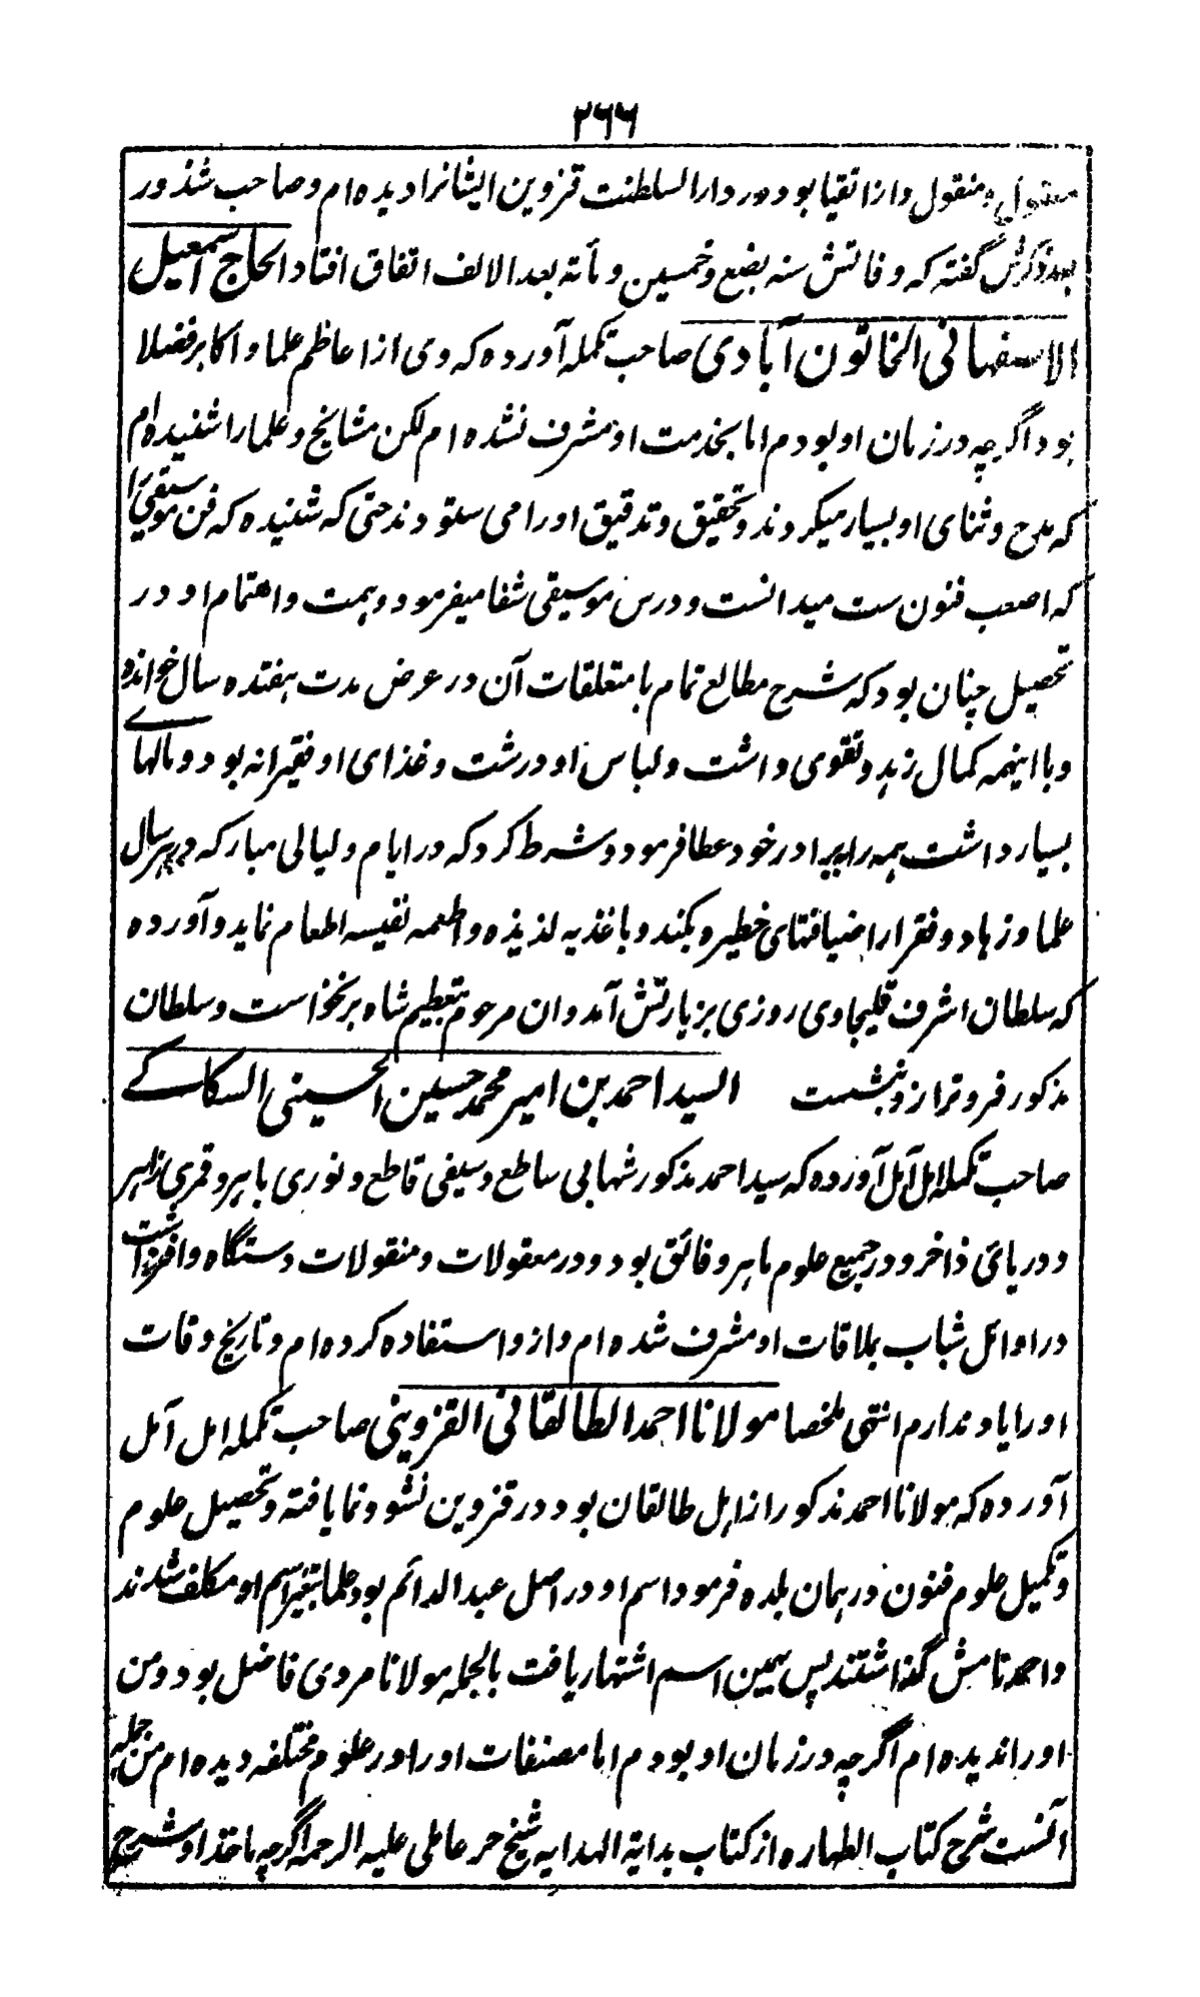 ۲۶۶
معقول و منقول و از اتقیا بود و در دار السلطنت قزوین ایشانرا دیده ام و صاحب شذور
بعد ذکرش گفته که وفاتش سنه بضع و خمسین و مأته بعد الالف اتفاق افتاد الحاج اسمعیل
الاصفهانی الخاتون آبادی صاحب تکمله آورده که وی از اعاظم علما و اکابر فضلا
بود اگرچه در زمان او بودم اما بخدمت او مشرف نشده ام لکن مشایخ و علما را شنیده ام
که مدح و ثنای او بسیار میکردند و تحقیق و تدقیق او را می ستودند حتی که شنیده که فن موسیقی را
که اصعب فنون ست میدانست و درس موسیقی شفا میفرمود و همت و اهتمام او در
تحصیل چنان بود که شرح مطالع تمام با متعلقات آن در عرض مدت هفتده سال خوانده
و با اینهمه کمال زهد و تقوی داشت و لباس او درشت و غذای او فقیرانه بود و مالهای
بسیار داشت همه را ببرادر خود عطا فرمود و شرط کرد که در ایام و لیالی مبارکه در هر سال
علما و زهاد و فقرا را ضیافتهای خطیره بکند و باغذیه لذیذه و اطعمه نفیسه اطعام نماید و آورده
که سلطان اشرف قلیجاوی روزی بزیارتش آمد و ان مرحوم بتعظیم شاه برنخواست و سلطان
مذکور فروتر ازو بنشست السید احمد بن امیر محمد حسین الحسینی السکاکے
صاحب تکمله امل آمل آورده که سید احمد مذکور شهابی ساطع و سیفی قاطع و نوری باهر و قمری زاهر
و دریائی ذاخر و در جمیع علوم ماهر و فائق بود و در معقولات و منقولات دستگاه وافر داشت
در اوائل شباب بملاقات او مشرف شده ام و ازو استفاده کرده ام و تاریخ وفات
او را یاد ندارم انتهی ملخصا مولانا احمد الطالقانی القزوینی صاحب تکمله امل آمل
آورده که مولانا احمد مذکور از اهل طالقان بود در قزوین نشو و نما یافته و تحصیل علوم
و تکمیل علوم فنون در همان بلده فرمود اسم او در اصل عبد الدائم بود علما بتغیر اسم او مکلف شدند
و احمد نامش گذاشتند پس بهمین اسم اشتهار یافت بالجمله مولانا مردی فاضل بود و من
او را ندیده ام اگرچه در زمان او بودم اما مصنفات او را در علوم مختلفه دیده ام من جمله
آنست شرح کتاب الطهاره از کتاب بدایة الهدایه شیخ حر عاملی علیه الرحمه اگرچه ماخذ او شرح